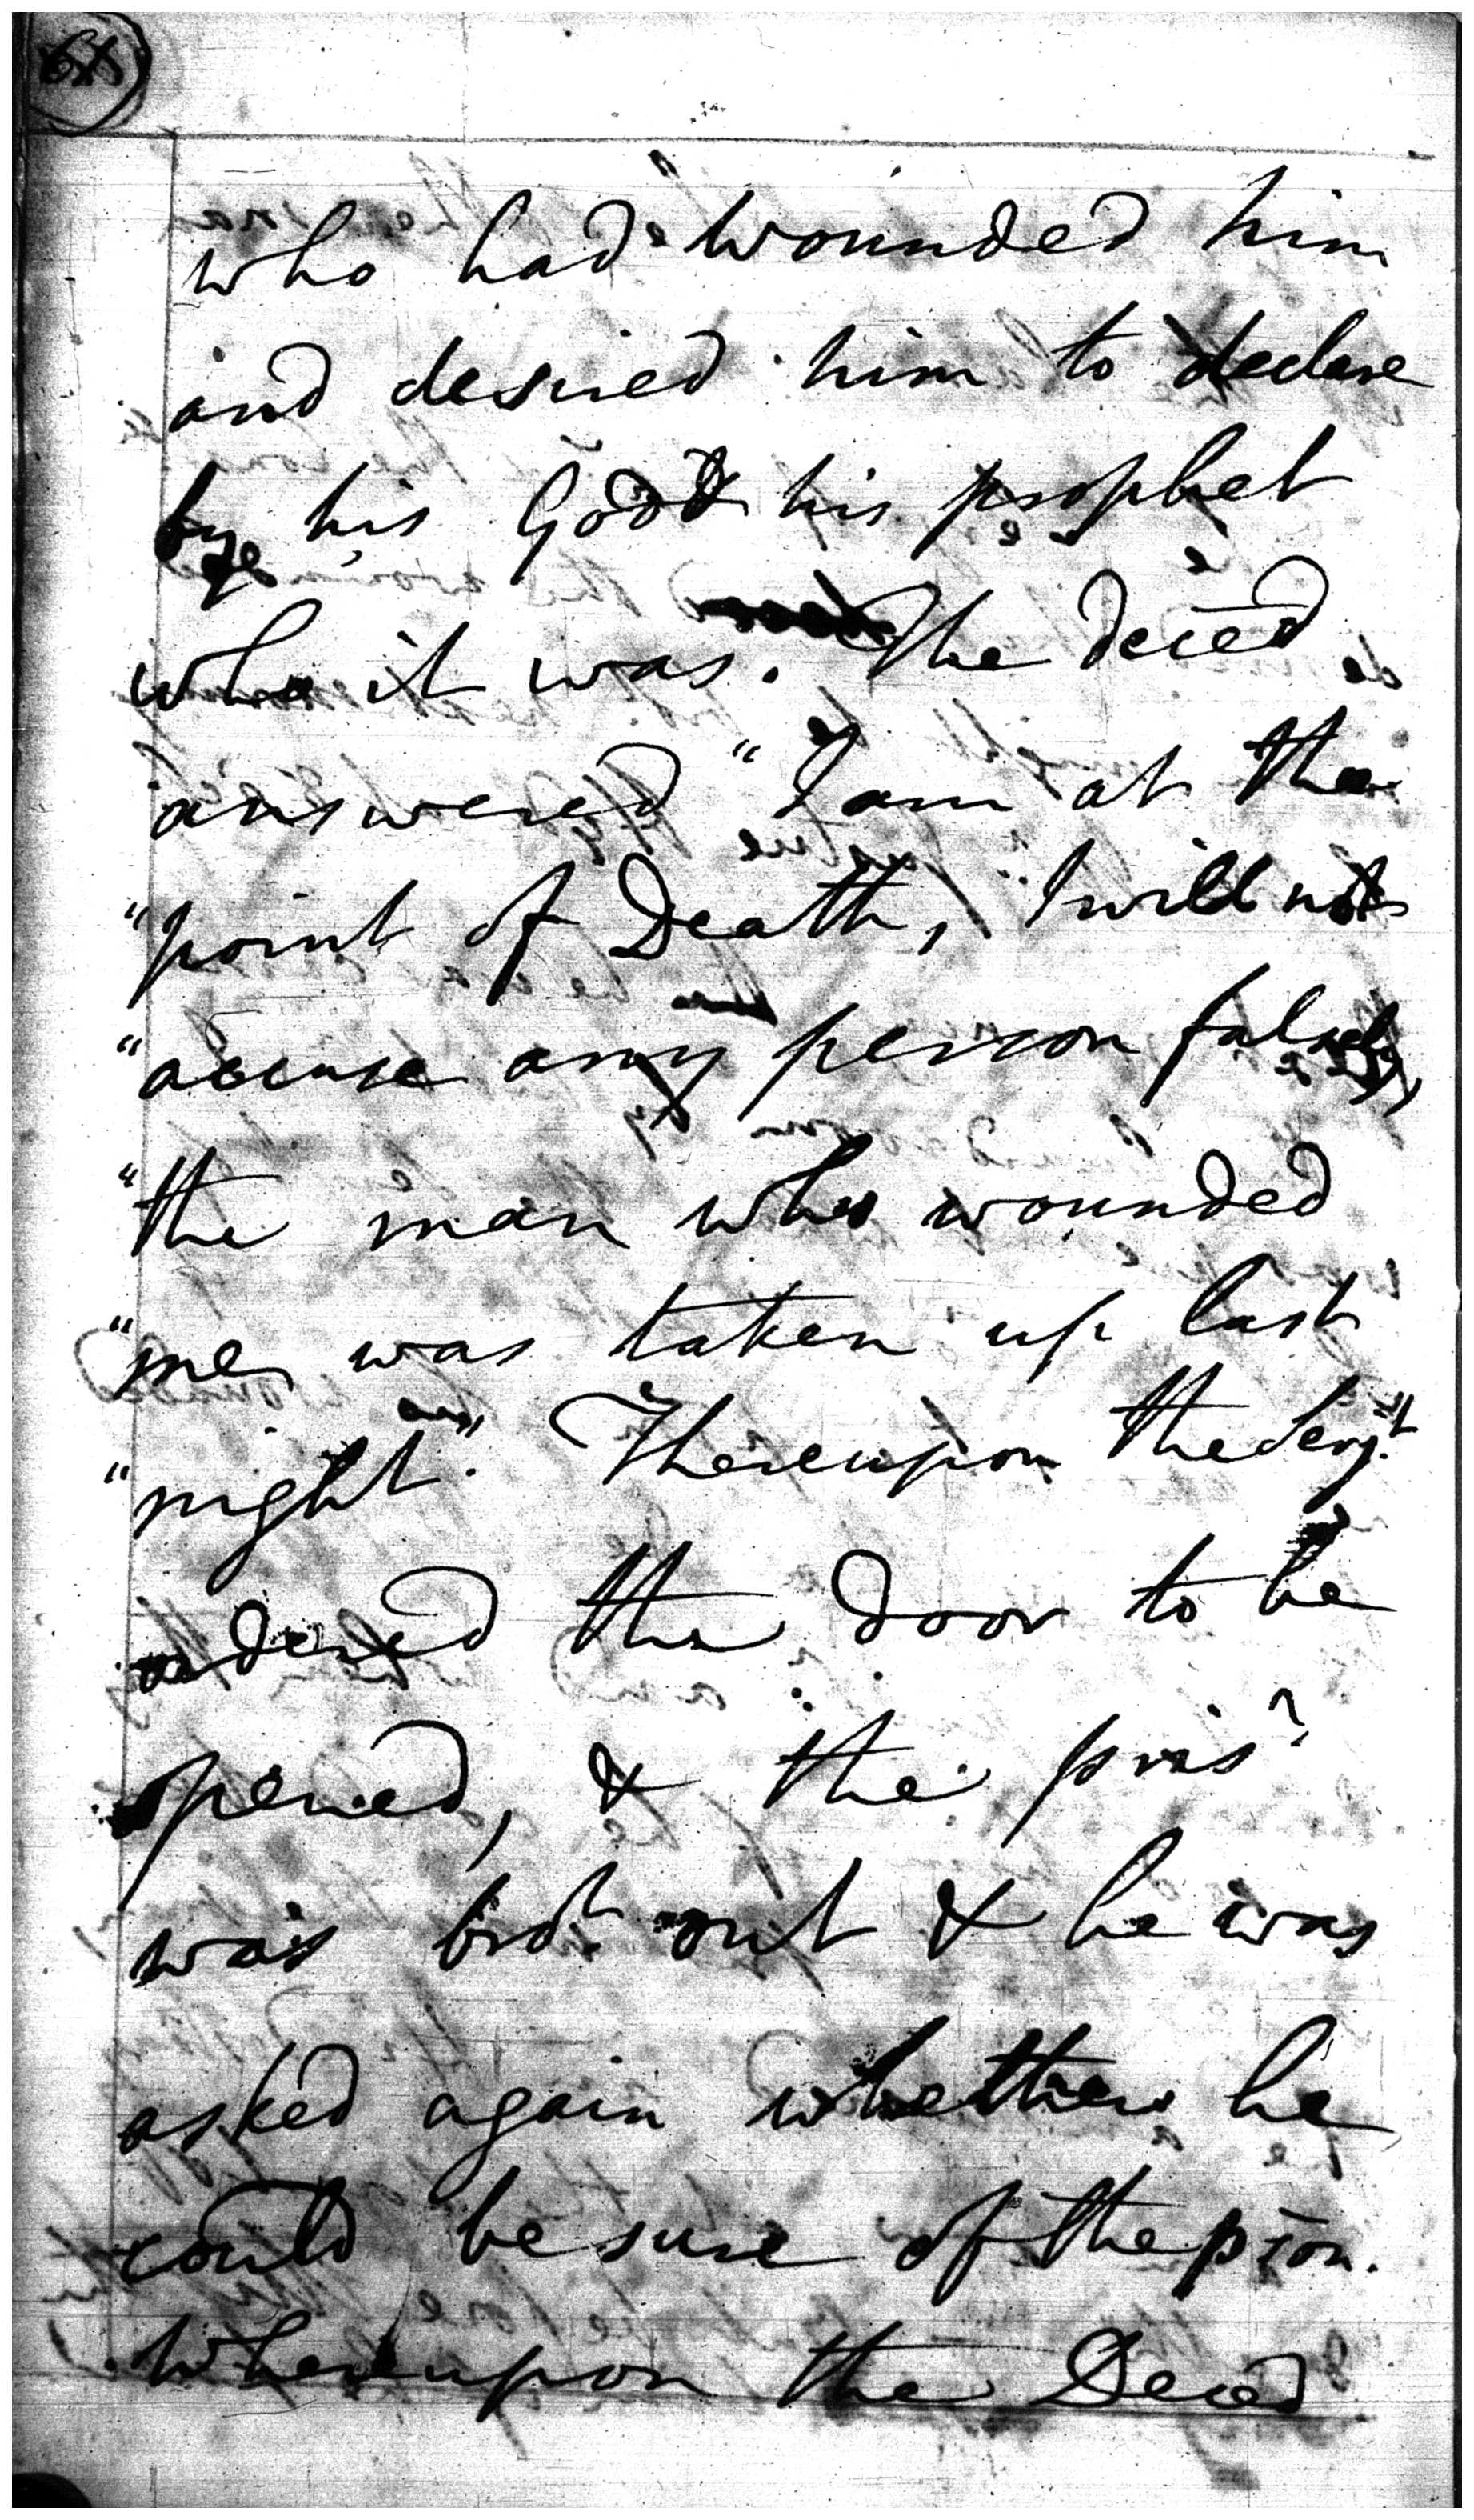 who had wounded him
and desired him to declare
by his God & his prophet
who it was. The deced
answered "I am at the
"point of Death, I will not
"accuse any person falsely,
"the man who wounded
"me was taken up last
"night". Thereupon the Serjt
ordered the door to be
opened, & the prisr
was brot out & he was
asked again whether he
could be sure of the pson.
Whereupon the Deced